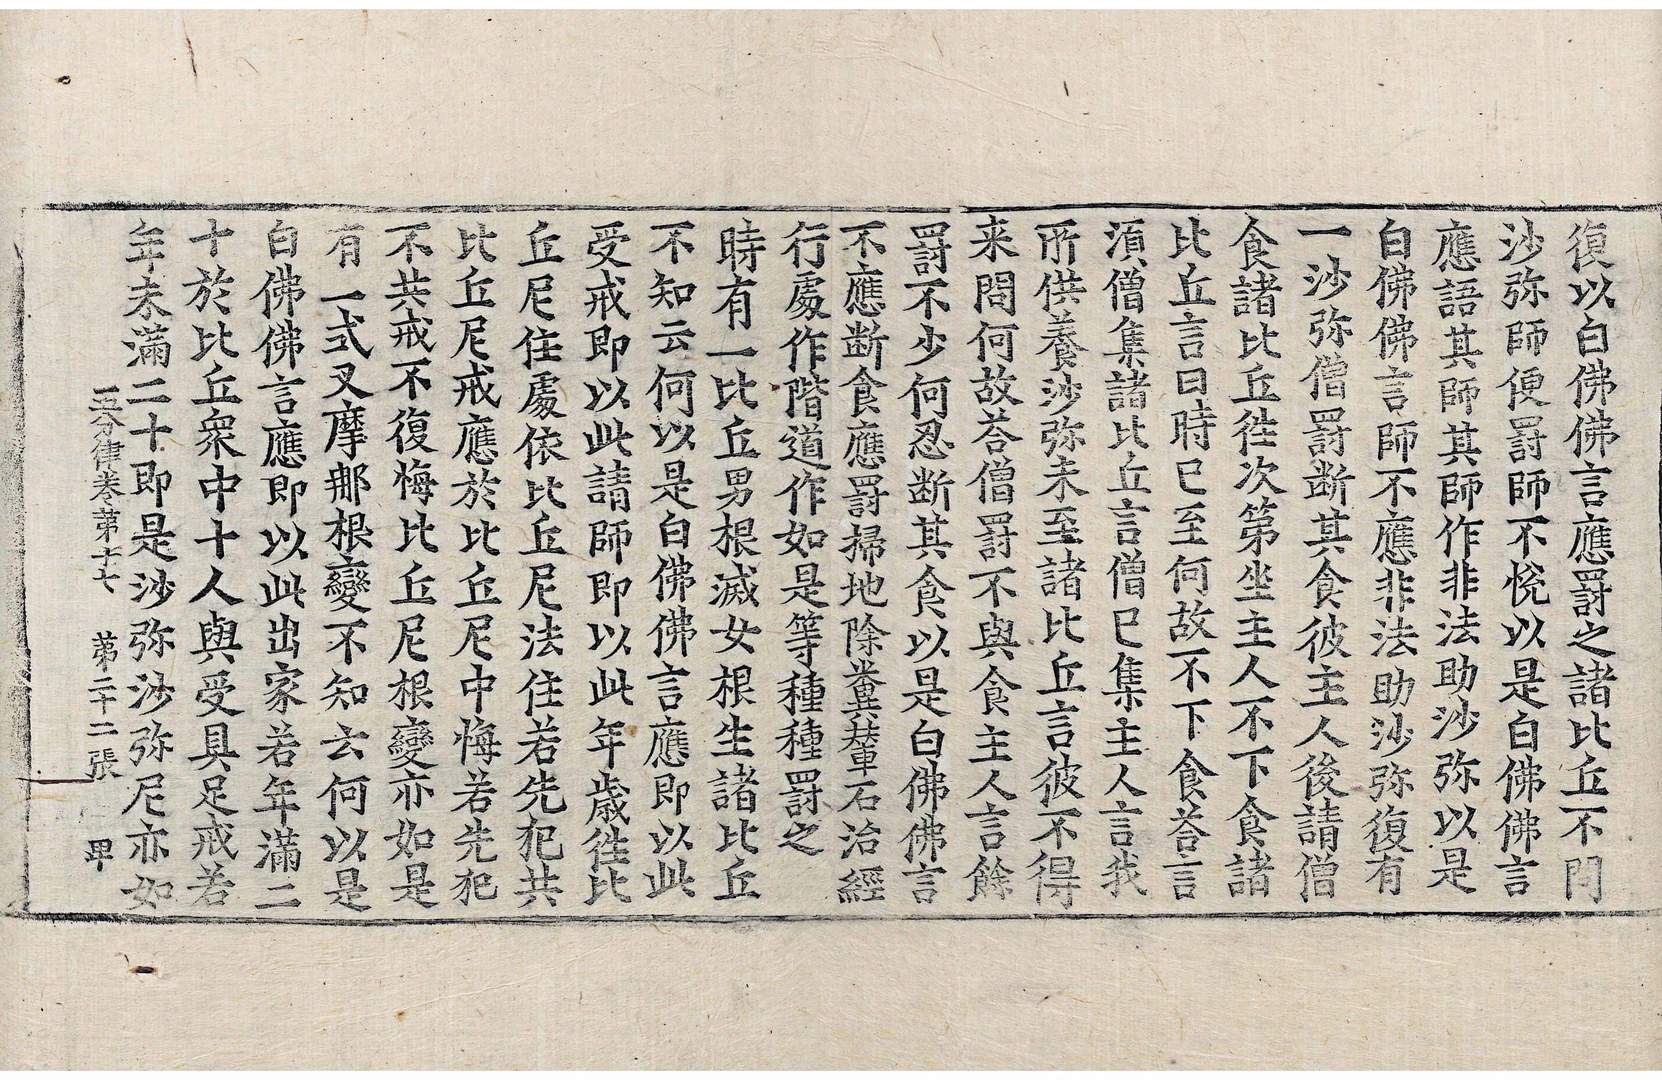 復以白佛佛言應罸之諸比丘不問
沙弥師便罸師不恱以是白佛佛言
應語其師其師作非法助沙弥以是
白佛佛言師不應非法助沙弥復有
一沙弥僧罸断其食彼主人後請僧
食諸比丘徃次第坐主人不下食諸
比丘言曰時已至何故不下食荅言
湏僧集諸比丘言僧已集主人言我
所供養沙弥未至諸比丘言彼不得
来問何故荅僧罸不與食主人言餘
罸不少何忍断其食以是白佛佛言
不應断食應罸掃地除糞轝石治經
行處作階道作如是等種種罸之
時有一比丘男根滅女根生諸比丘
不知云何以是白佛佛言應即以此
受戒即以此請師即以此年歳徃比
丘尼住處依比丘尼法住若先犯共
比丘尼戒應於比丘尼中悔若先犯
不共戒不復悔比丘尼根變亦如是
有一式叉摩那根變不知云何以是
白佛佛言應即以此出家若年滿二
十於比丘衆中十人與受具足戒若
年未滿二十即是沙弥沙弥尼亦如
五分律卷第十七 第二十二張 卑